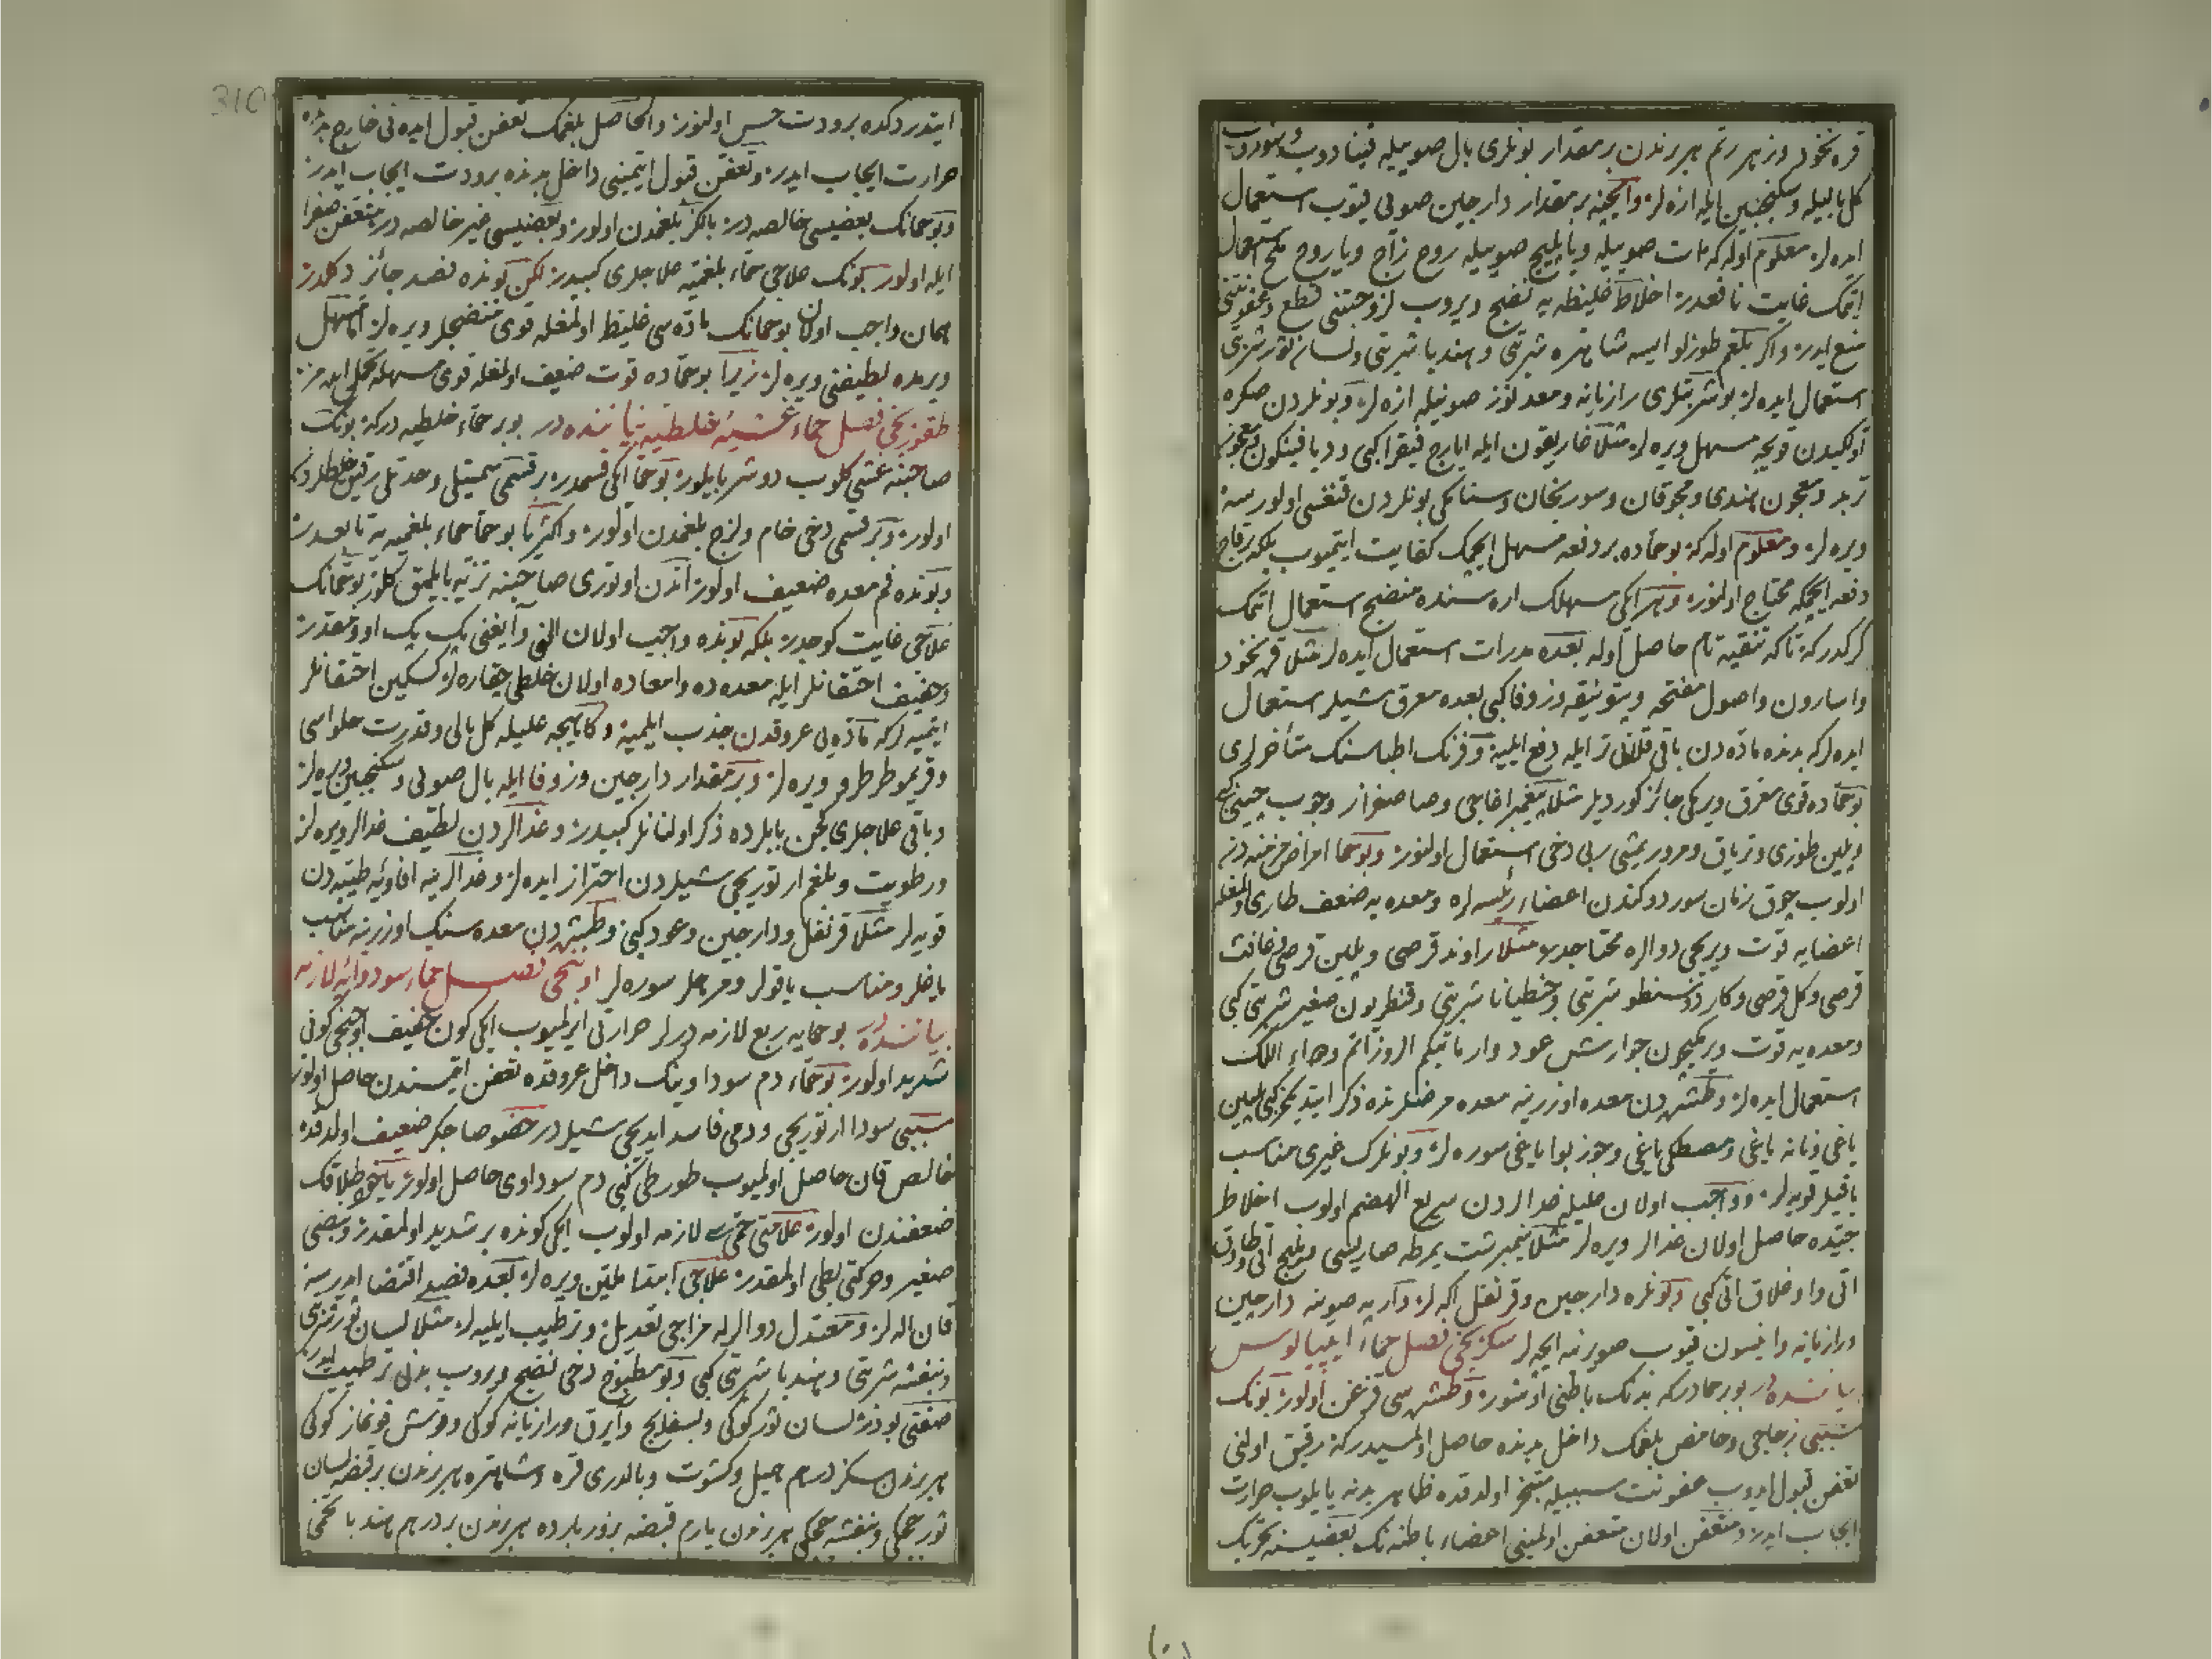 قره نخود وزهر رتم هر برندن بر مقدار بونلری بال صوییله قینادوب
کل بالیله وسکنجبین ایله ازه لر وایچنه بر مقدار دارچین صویی قیوب استعمال
ایده لر معلوم اوله که مات صوییله ویا پلیج صوییله روح زاج ویا روح ملح استعمال
اتمک غایت نافعدر اخلاط غلیظه یه نضج ویروب لزوجتنی قطع وعفونتنی
منع ایدر واکر بلغم طوزلو ایسه شاهتره شربتی وهندبا شربتی ولسان ثور شربتی
استعمال ایده لر بو شربتلری رازیانه ومعدنوز صوییله ازه لر وبونلردن صکره
قویجه مسهل ویره لر مثلا غاریقون ایله ایارج فیقرا کبی
تربد ومعجون هندی وسورنجان وسنامکی بونلردن قنغسی اولورسه
ویره لر ومعلوم اوله که بو حماده بر دفعه مسهل ایچمک کفایت ایتمیوب بلکه برقاچ
دفعه ایچمکه محتاج اولنور وهر ایکی مسهلک اره سنده منضج استعمال اتمک
کرکدر که تاکه تنقیه تام حاصل اوله بعده مدرات استعمال ایده لر مثلا قره نخود
واسارون واصول مفتحه وزوفا کبی بعده معرق شیلر استعمال
ایده لر که بدنده ماده دن باقی قلانی تر ایله دفع ایلیه وفرنک اطباسنک متأخرلری
بو حماده قوی معرق ویرمکی جائز کوردیلر مثلا
طوزی وتریاق دخی استعمال اولنور وبو حما امراض مزمنه دن
اولوب چوق زمان سوردوکندن اعضاء رئیسه لره ومعده یه ضعف طاری اولمغله
اعضایه قوت ویریجی دوالره محتاجدر مثلا راوند قرصی قرصی غافث
قرصی وکل قرصی شربتی وجنطیانا شربتی وقنطریون صغیر شربتی کبی
ومعده یه قوت ویرمکیچون جوارش عود
استعمال ایده لر وطشردن معده اوزرینه معده مرضلرنده ذکر
یاغی ونانه یاغی ومصطکی یاغی وجوز بوا یاغی سوره لر وبونلرک غیری مناسب
یاقیلر قویه لر وواجب اولان علیله غدالردن سریع الهضم اولوب اخلاط
جیده حاصل اولان غدالر ویره لر مثلا نیمبرشت یمرطه صاریسی وپلیج اتی
اتی واوغلاق اتی کبی وبونلره دارچین وقرنفل اکه لر وآرپه صوینه دارچین
ورازیانه وانیسون قیوب صویینه ایچه لر سکزنجی فصل حماء ایپیالوس
بیاننده در بو بر حمادر که بدنک باطنی اوشور وطشره سی قزغن اولور بونک
سببی زجاجی وحامض بلغمک داخل بدنده حاصل اولمسیدر که رقیق اولنی
تعفن قبول ایدوب عفونت سببیله متبخر اولدقده ظاهر بدنه یایلوب حرارت
ایجاب ایدر ومتعفن اولان متعفن اولمینی اعضاء باطنه نک بعضیسنه تحریک
ایتدردکده برودت حس اولنور والحاصل بلغمک تعفن قبول ایده نی خارج بدنده
حرارت ایجاب ایدر وتعفن قبول ایتمینی داخل بدنده برودت ایجاب ایدر
وبو حمانک بعضیسی خالصه در یالکز بلغمدن اولور وبعضیسی غیر خالصه در متعفن صفرا
ایله اولور بونک علاجی حماء بلغمیه علاجلری کبیدر لکن بونده فصد جائز دکلدر
همان واجب اولان بو حمانک ماده سی غلیظ اولمغله قوی منضجلر ویره لر اما مسهل
ویرمده لطیفنی ویره لر زیرا بو حماده قوت ضعیف اولمغله قوی مسهله تحمل ایده مز
طقوزنجی فصل حماء غشیه غلیظیه بیاننده در بو بر حماء خلطیه در که بونک
صاحبنه غشی کلوب دوشر بایلور بو حما ایکی قسمدر بر قسمی سمیتلی وحدتلی رقیق خلطلردن
اولور وبر قسمی دخی خام ولزج بلغمدن اولور واکثریا بو حما حماء بلغمیه یه تابعدر
وبونده فم معده ضعیف اولور اندن اوتوری صاحبنه تزجه بایلمق کلور بو حمانک
علاجی غایت کوجدر بلکه بونده واجب اولان الی وآیغنی پک پک اوومقدر
وخفیف احتقانلر ایله معده ده وامعاده اولان خلطی چقاره لر کسکین احتقانلر
ایتمیه لر که ماده یی عروقدن جذب ایلمیه وکاهیجه علیله کل بالی وقدرت حلواسی
وقریموطرطرو ویره لر وبر مقدار دارچین وزوفا ایله بال صویی وسکنجبین ویره لر
وباقی علاجلری کچن بابلرده ذکر اولنانلر کبیدر وغدالردن لطیف غدالر ویره لر
ورطوبت وبلغم ارتوریجی شیلردن احتراز ایده لر وغدالرینه افاویه طیبه دن
قویه لر مثلا قرنفل ودارچین وعود کبی وطشره دن معده سنک اوزرینه مناسب
یاغلر ومناسب یاقولر ومرهملر سوره لر اوننجی فصل حماء سوداویه لازمه
بیاننده در بو حمایه ربع لازمه دیرلر حرارتی ایرلمیوب ایکی کون خفیف اوچنجی کونی
شدید اولور بو حماء دم سوداوینک داخل عروقده تعفن اتمسندن حاصل اولور
سببی سودا ارتوریجی ودمی فاسد ایدیجی شیلردر خصوصا جکر ضعیف اولدقده
خالص قان حاصل اولمیوب طورطی کبی دم سوداوی حاصل اولور یاخود طلاقک
ضعفندن اولور علامتی حمی لازمه اولوب ایکی کونده بر شدید اولمقدر ونبضی
صغیر وحرکتی بطی اولمقدر علاجی ابتدا ملین ویره لر بعده فصد اقتضا ایدرسه
قان اله لر ومعتدل دوالرله مزاجی تعدیل وترطیب ایلیه لر مثلا لسان ثور شربتی
وبنفشه شربتی وهندبا شربتی کبی وبو مطبوخ دخی نضج ویروب بدنی ترطیب ایدر
صنعتی بودر لسان ثور کوکی وبسفایج وآیرق ورازیانه کوکی وقوش قونماز کوکی
هر برندن سکز درهم وکشوت وبالدری قره وشاهتره هر برندن بر قبضه لسان
ثور چچکی وبنفشه چچکی هر برندن یارم قبضه بزور بارده هر برندن بر درهم هندبا تخمی